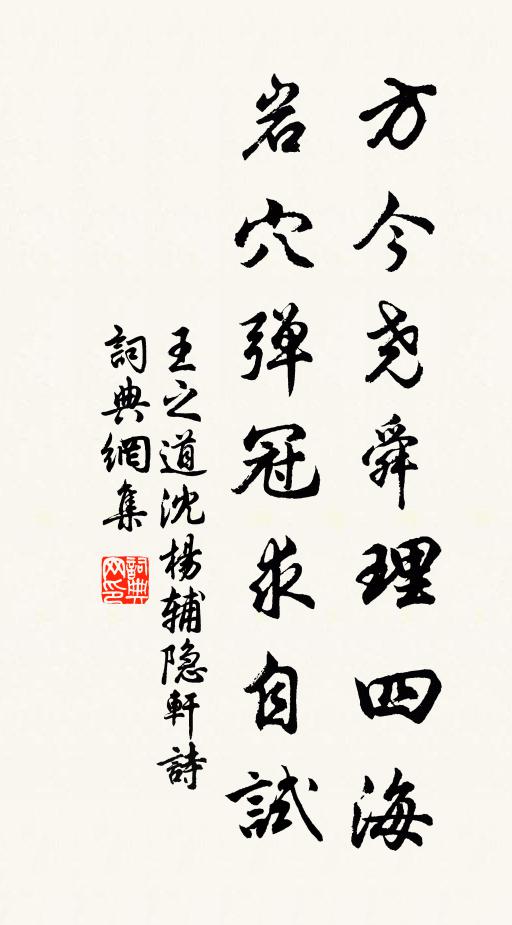 方今尧舜理四海
岩穴弹冠求自試
王之道沈楊辅隐軒詩
詞典網集
詞典网印